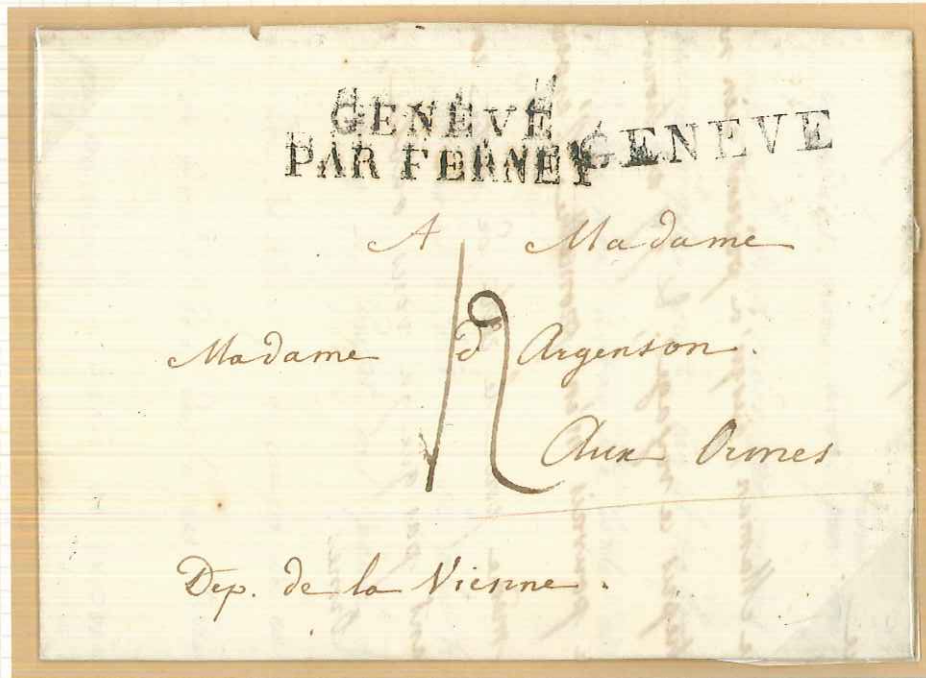 GENEVE
PAR FERNEY GENEVE
A Madame
Madame d'Argenson.
12
Aux Ormes
Dep. de la Vienne.